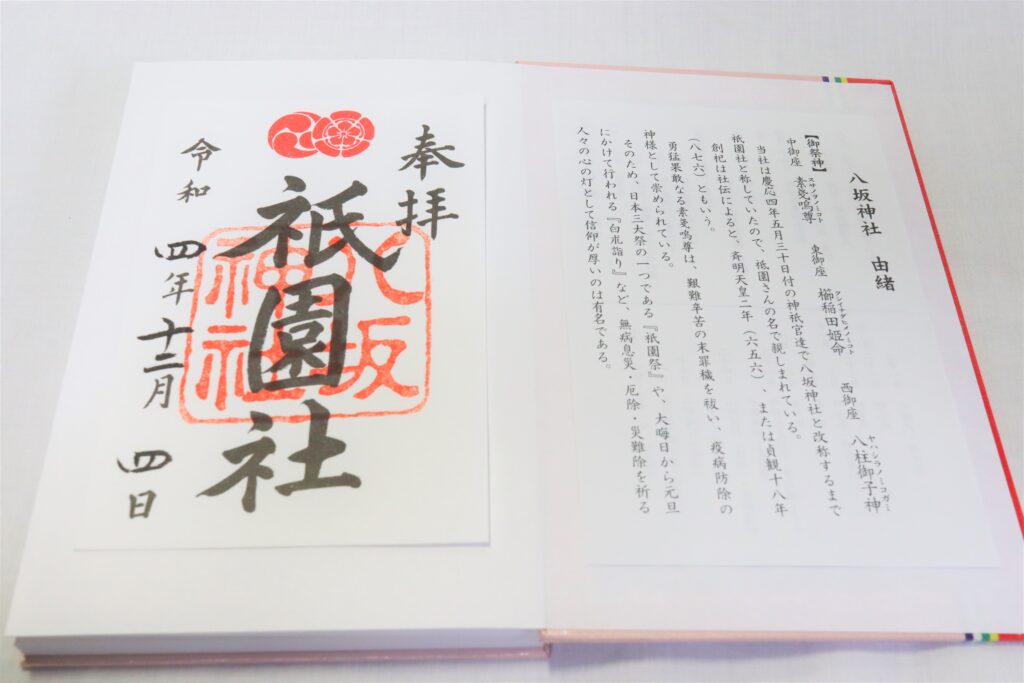 八坂神社 由緒
【御祭神】
スサノヲノミコト クシイナダヒメノミコト ヤハシラノミコガミ
中御座 素戔嗚尊 東御座 櫛稲田姫命 西御座 八柱御子神
当社は慶応四年五月三十日付の神祇官達で八坂神社と改称するまで
祇園社と称していたので、祇園さんの名で親しまれている。
創祀は社伝によると、斉明天皇二年(六五六)、または貞観十八年
(八七六)ともいう。
勇猛果敢なる素戔嗚尊は、艱難辛苦の末罪穢を祓い、疫病防除の
神様として崇められている。
そのため、日本三大祭の一つである『祇園祭』や、大晦日から元旦
にかけて行われる『白朮詣り』など、無病息災・厄除・災難除を祈る
人々の心の灯として信仰が厚いのは有名である。
奉拝
祇園社
八坂
神社
令和四年十二月四日